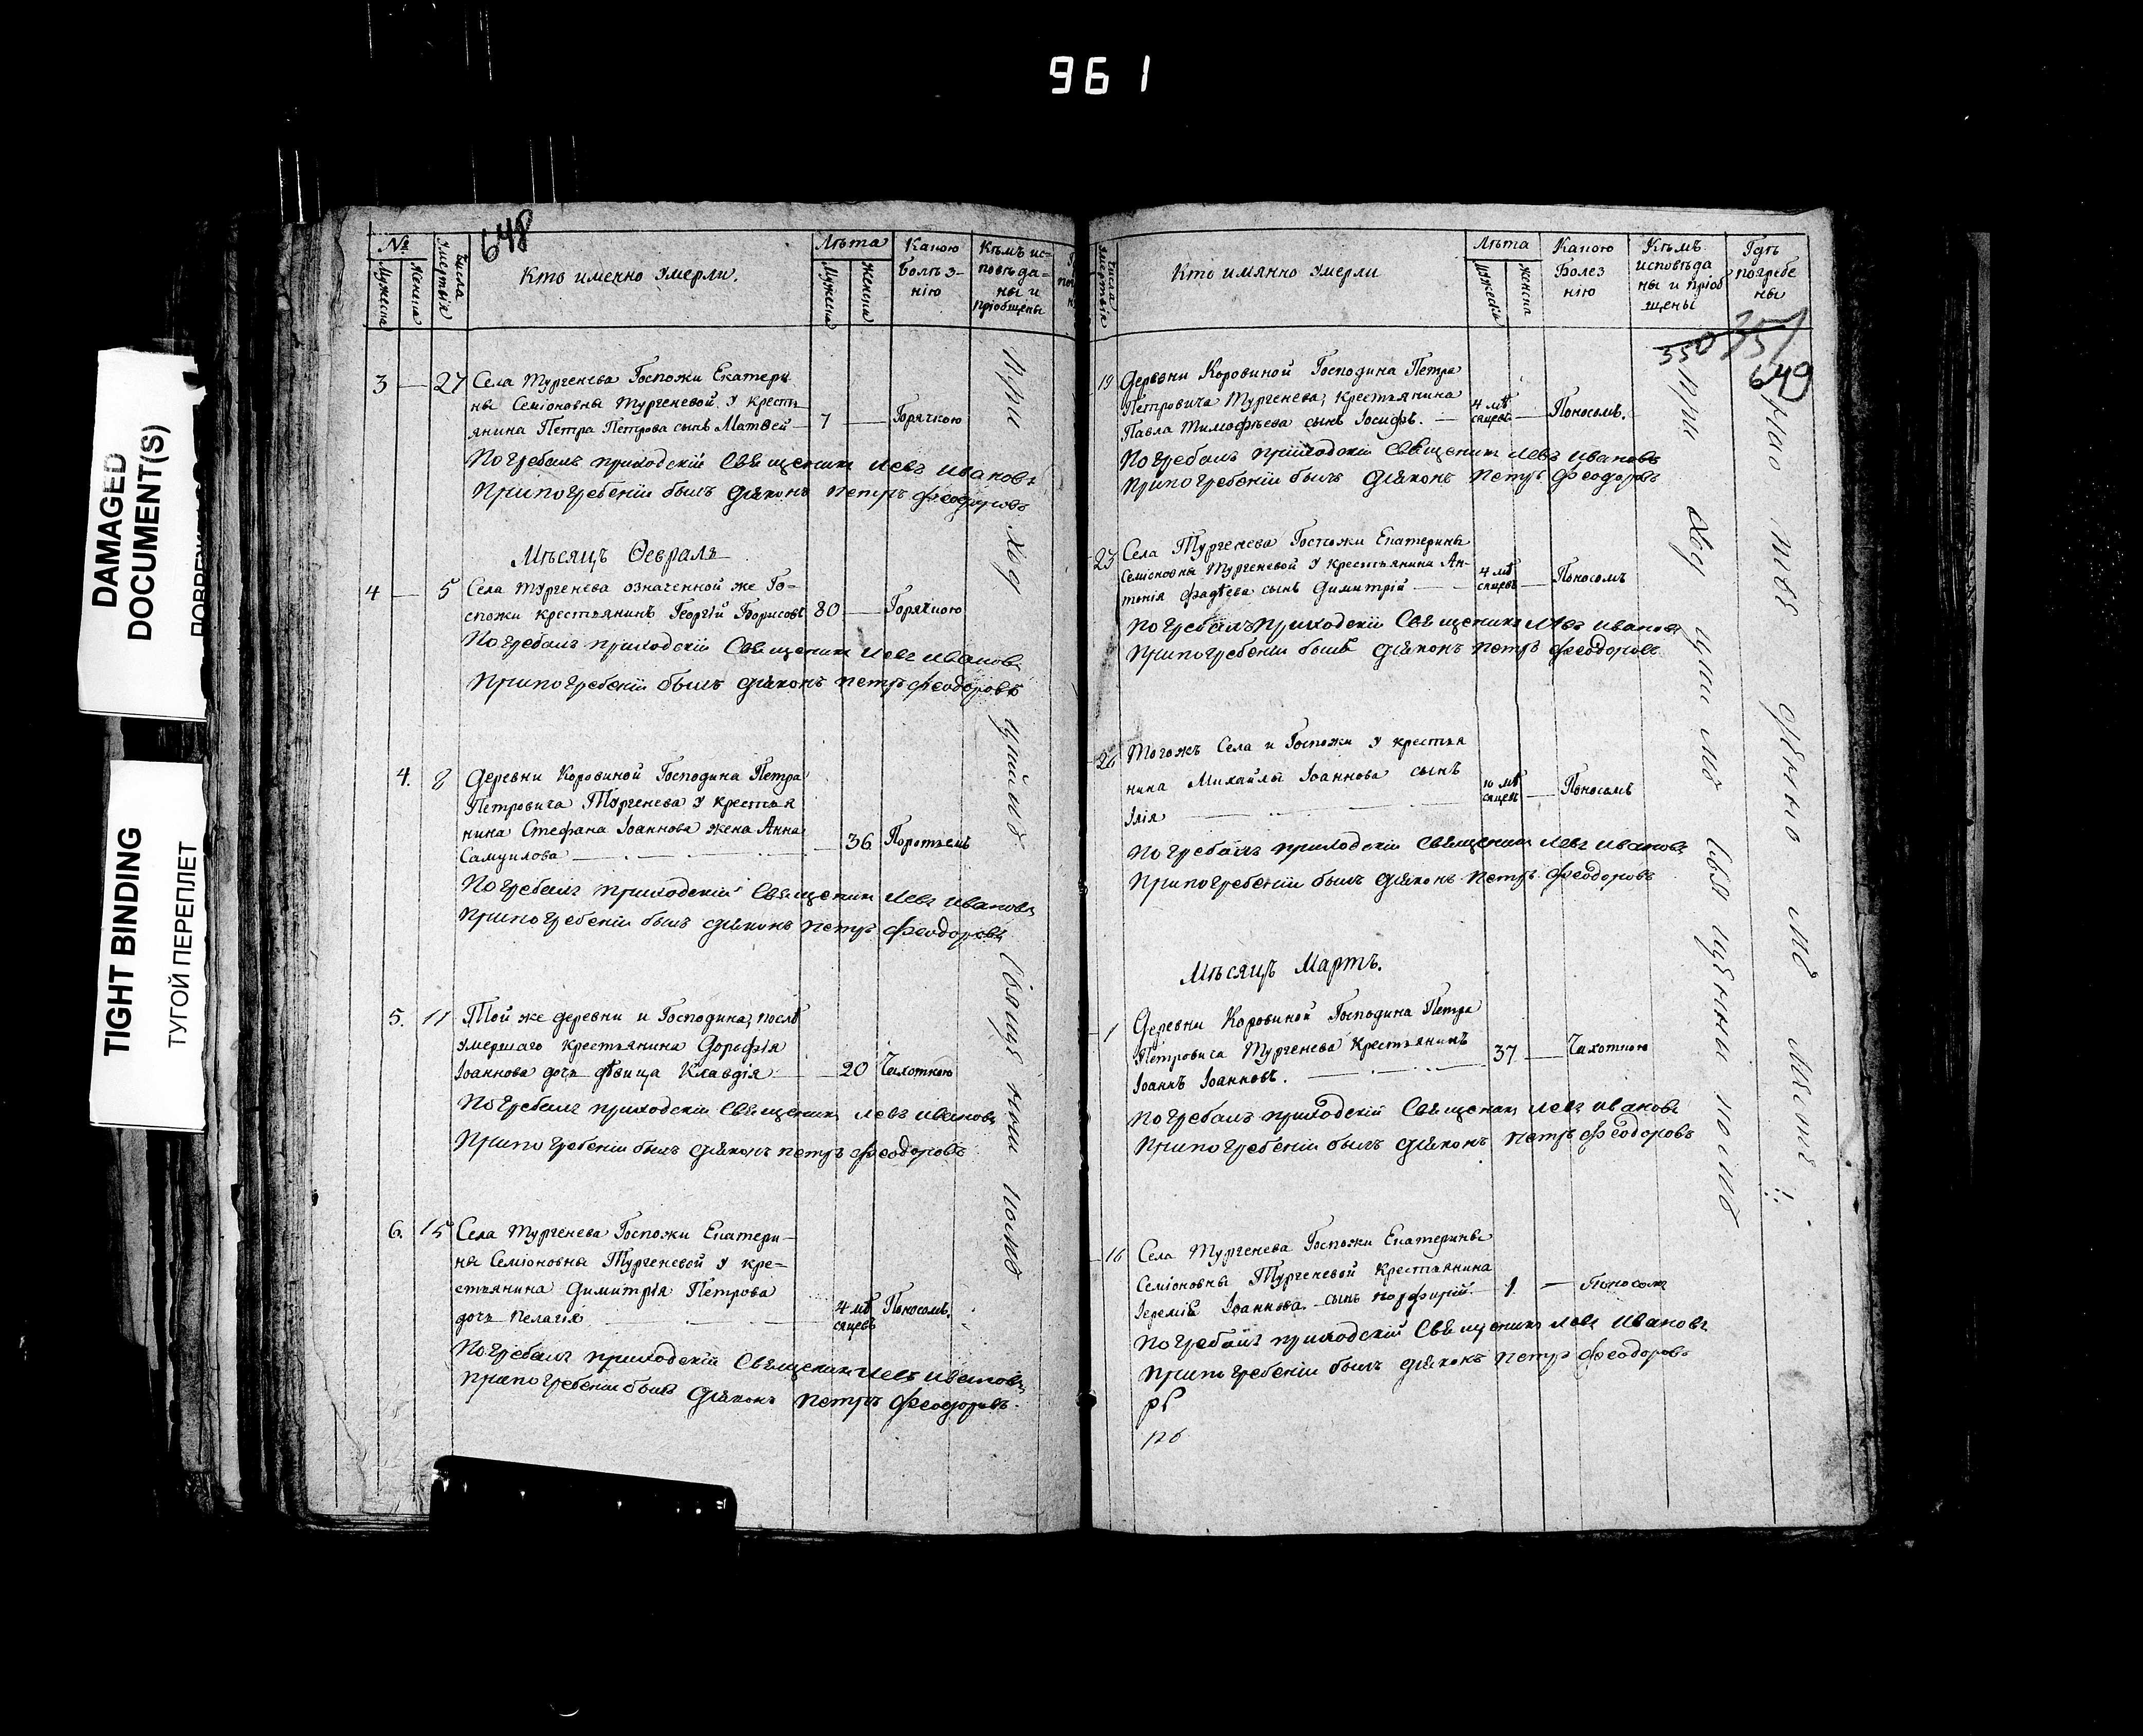 961
DAMAGED
DOCUMENT(S)
TIGHT BINDING
ТУГОЙ ПЕРЕПЛЕТ
648
№
Мужеска
Женска
Числа
Умертвія
Кто именно умерли.
Лѣта
Мужеска
Женска
Какою
Болѣз-
нію
Кѣмъ ис-
повѣда-
ны и
пріобщены
3 — 27 Села Тургенева Госпожи Екатери
ны Семіоновны Тургеневой, у кресть
янина Петра Петрова сынъ Матвей — 7 — Горячкою
Погребалъ приходскій Священникъ Левъ Ивановъ
При погребеніи былъ Діяконъ Петръ Феодоровъ
Мѣсяцъ Февраль
4 — 5 Села Тургенева означенной же Го-
спожи крестьянинъ Георгій Борисовъ 80 — Горячкою
Погребалъ приходскій Священникъ Левъ Ивановъ
При погребеніи былъ Діяконъ Петръ Феодоровъ
4. 8 Деревни Коровиной Господина Петра
Петровича Тургенева у крестья
нина Стефана Іоаннова жена Анна
Самуилова — 36
Погребалъ приходскій Священникъ Левъ Ивановъ
При погребеніи былъ Діяконъ Петръ Феодоровъ
5. 11 Той же деревни и Господина, послѣ
умершаго крестьянина Дорофѣя
Іоаннова дочь дѣвица Клавдія — 20 Чахоткою
Погребалъ приходскій Священникъ Левъ Ивановъ
При погребеніи былъ Діяконъ Петръ Феодоровъ
6. 15 Села Тургенева Госпожи Екатери-
ны Семіоновны Тургеневой у кре-
стьянина Димитрія Петрова
дочь Пелагія — 4 мѣ
сяцевъ Поносомъ.
Погребалъ приходскій Священникъ Левъ Ивановъ
При погребеніи былъ Діяконъ Петръ Феодоровъ.
При
ход
Священники
Числа
Умертвія
Кто имянно умерли
Лѣта
Мужеска
Женска
Какою
Болез
нію
Кѣмъ
исповѣда
ны и пріоб
щены
Гдѣ
погребе
ны
350 351
649
19 Деревни Коровиной Господина Петра
Петровича Тургенева, крестьянина
Павла Тимофѣева сынъ Іосифъ. — 4 мѣ
сяцевъ — Поносомъ.
Погребалъ приходскій Священникъ Левъ Ивановъ
При погребеніи былъ Діяконъ Петръ Феодоровъ
23 Села Тургенева Госпожи Екатерины
Семіоновны Тургеневой у крестьянина Ан-
тонія Фадѣева сынъ Димитрій — 4 мѣ
сяцевъ — Поносомъ
Погребалъ приходскій Священникъ Левъ Ивановъ
При погребеніи былъ Діяконъ Петръ Феодоровъ
26 Тогожъ Села и Госпожи у крестья
нина Михайлы Іоаннова сынъ
Ілія — 10 мѣ
сяцевъ — Поносомъ
Погребалъ приходскій Священникъ Левъ Ивановъ
При погребеніи былъ Діяконъ Петръ Феодоровъ
Мѣсяцъ Мартъ.
1 Деревни Коровиной Господина Петра
Петровича Тургенева крестьянинъ
Іоаннъ Іоанновъ. — 37 — Чахоткою
Погребалъ приходскій Священникъ Левъ Ивановъ
При погребеніи былъ Діяконъ Петръ Феодоровъ
16 Села Тургенева Госпожи Екатерины
Семіоновны Тургеневой крестьянина
Іереміи Іоаннова сынъ Порфирій. — 1 — Поносомъ
Погребалъ приходскій Священникъ Левъ Ивановъ
При погребеніи былъ Діяконъ Петръ Феодоровъ
126
При